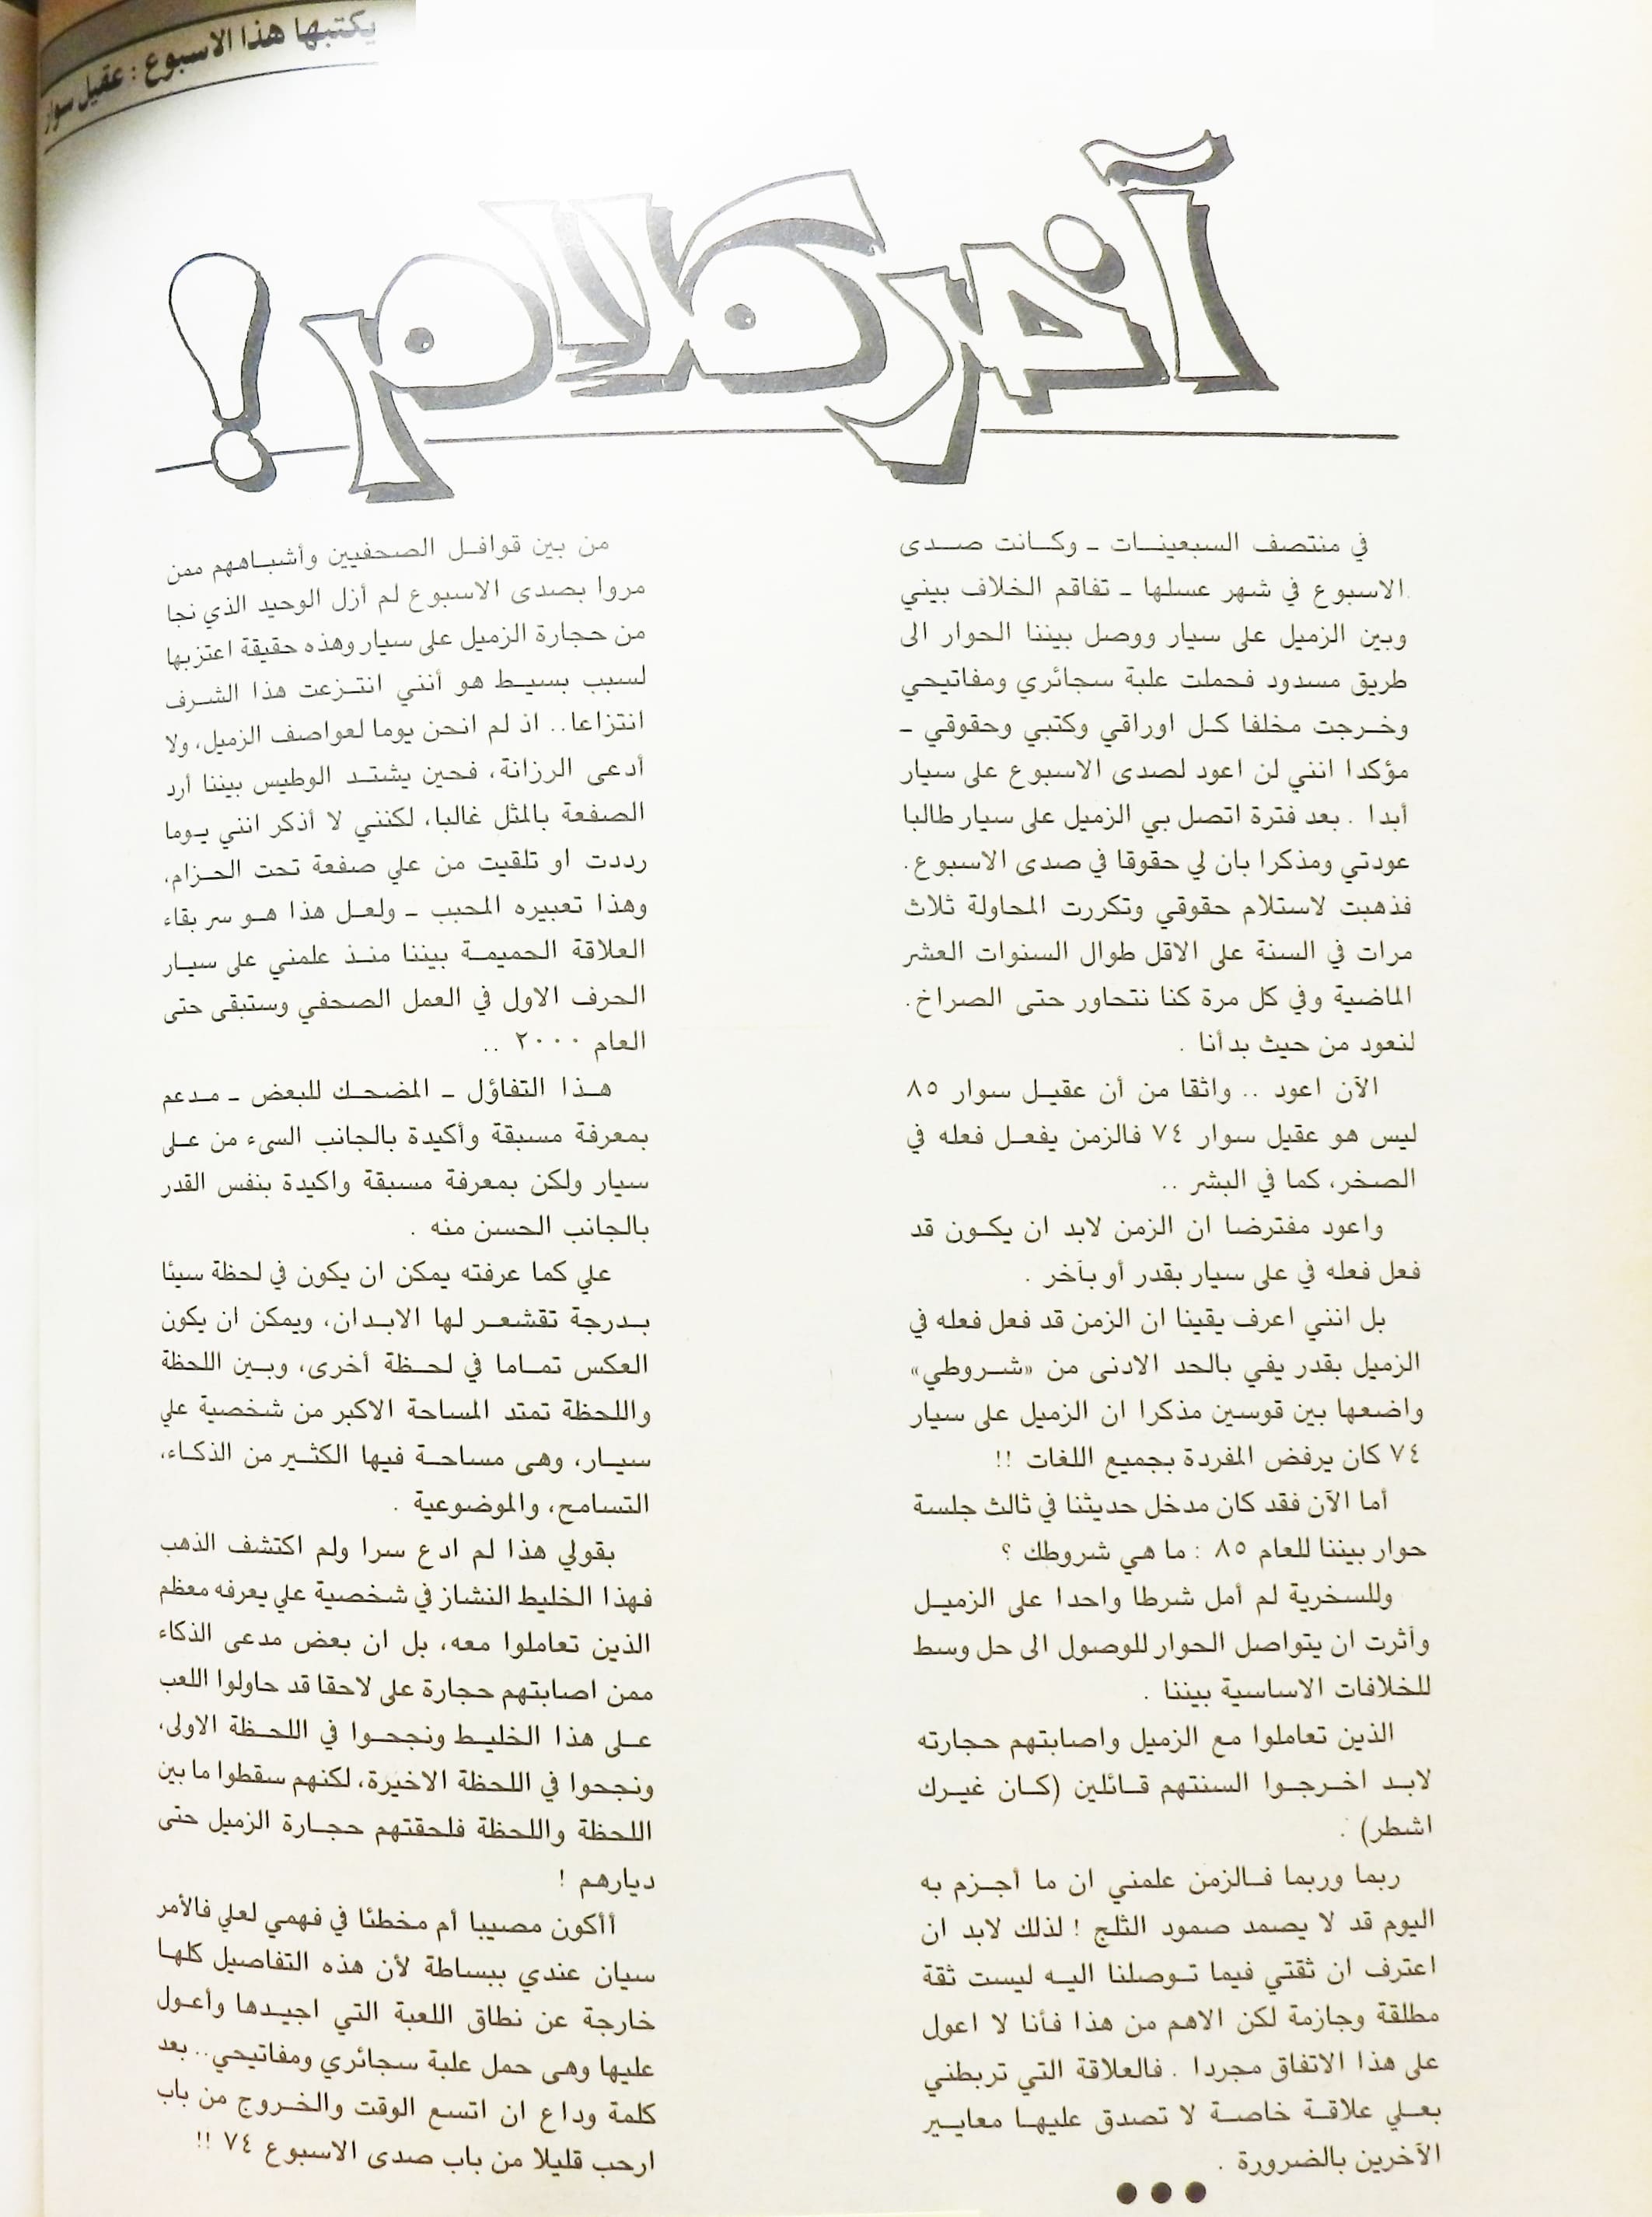 يكتبها هذا الاسبوع : عقيل سوار
آخر كلام !
في منتصف السبعينات ــ وكانت صدى
الاسبوع في شهر عسلها ــ تفاقم الخلاف بيني
وبين الزميل على سيار ووصل بيننا الحوار الى
طريق مسدود فحملت علبة سجائري ومفاتيحي
وخرجت مخلفا كل اوراقي وكتبي وحقوقي ــ
مؤكدا انني لن اعود لصدى الاسبوع على سيار
أبدا . بعد فترة اتصل بي الزميل على سيار طالبا
عودتي ومذكرا بان لي حقوقا في صدى الاسبوع .
فذهبت لاستلام حقوقي وتكررت المحاولة ثلاث
مرات في السنة على الاقل طوال السنوات العشر
الماضية وفي كل مرة كنا نتحاور حتى الصراخ .
لنعود من حيث بدأنا .
الآن اعود .. واثقا من أن عقيل سوار ٨٥
ليس هو عقيل سوار ٧٤ فالزمن يفعل فعله في
الصخر، كما في البشر ..
واعود مفترضا ان الزمن لابد ان يكون قد
فعل فعله في على سيار بقدر أو بآخر .
بل انني اعرف يقينا ان الزمن قد فعل فعله في
الزميل بقدر يفي بالحد الادنى من «شروطي»
واضعها بين قوسين مذكرا ان الزميل على سيار
٧٤ كان يرفض المفردة بجميع اللغات !!
أما الآن فقد كان مدخل حديثنا في ثالث جلسة
حوار بيننا للعام ٨٥ : ما هي شروطك ؟
وللسخرية لم أمل شرطا واحدا على الزميل
وآثرت ان يتواصل الحوار للوصول الى حل وسط
للخلافات الاساسية بيننا .
الذين تعاملوا مع الزميل واصابتهم حجارته
لابد اخرجوا السنتهم قائلين (كان غيرك
اشطر) .
ربما وربما فالزمن علمني ان ما أجزم به
اليوم قد لا يصمد صمود الثلج ! لذلك لابد ان
اعترف ان ثقتي فيما توصلنا اليه ليست ثقة
مطلقة وجازمة لكن الاهم من هذا فأنا لا اعول
على هذا الاتفاق مجردا . فالعلاقة التي تربطني
بعلي علاقة خاصة لا تصدق عليها معايير
الآخرين بالضرورة .
●●●
من بين قوافل الصحفيين وأشباههم ممن
مروا بصدى الاسبوع لم أزل الوحيد الذي نجا
من حجارة الزميل على سيار وهذه حقيقة اعتزبها
لسبب بسيط هو أنني انتزعت هذا الشرف
انتزاعا.. اذ لم انحن يوما لعواصف الزميل، ولا
أدعى الرزانة، فحين يشتد الوطيس بيننا أرد
الصفعة بالمثل غالبا، لكنني لا أذكر انني يوما
رددت او تلقيت من علي صفعة تحت الحزام،
وهذا تعبيره المحبب ــ ولعل هذا هو سر بقاء
العلاقة الحميمة بيننا منذ علمني على سيار
الحرف الاول في العمل الصحفي وستبقى حتى
العام ٢٠٠٠ ..
هذا التفاؤل ــ المضحك للبعض ــ مدعم
بمعرفة مسبقة وأكيدة بالجانب السىء من على
سيار ولكن بمعرفة مسبقة واكيدة بنفس القدر
بالجانب الحسن منه .
علي كما عرفته يمكن ان يكون في لحظة سيئا
بدرجة تقشعر لها الابدان، ويمكن ان يكون
العكس تماما في لحظة أخرى، وبين اللحظة
واللحظة تمتد المساحة الاكبر من شخصية علي
سيار، وهى مساحة فيها الكثير من الذكاء،
التسامح، والموضوعية .
بقولي هذا لم ادع سرا ولم اكتشف الذهب
فهذا الخليط النشاز في شخصية علي يعرفه معظم
الذين تعاملوا معه، بل ان بعض مدعى الذكاء
ممن اصابتهم حجارة على لاحقا قد حاولوا اللعب
على هذا الخليط ونجحوا في اللحظة الاولى،
ونجحوا في اللحظة الاخيرة، لكنهم سقطوا ما بين
اللحظة واللحظة فلحقتهم حجارة الزميل حتى
ديارهم !
أأكون مصيبا أم مخطئا في فهمي لعلي فالأمر
سيان عندي ببساطة لأن هذه التفاصيل كلها
خارجة عن نطاق اللعبة التي اجيدها وأعول
عليها وهى حمل علبة سجائري ومفاتيحي.. بعد
كلمة وداع ان اتسع الوقت والخروج من باب
ارحب قليلا من باب صدى الاسبوع ٧٤ !!